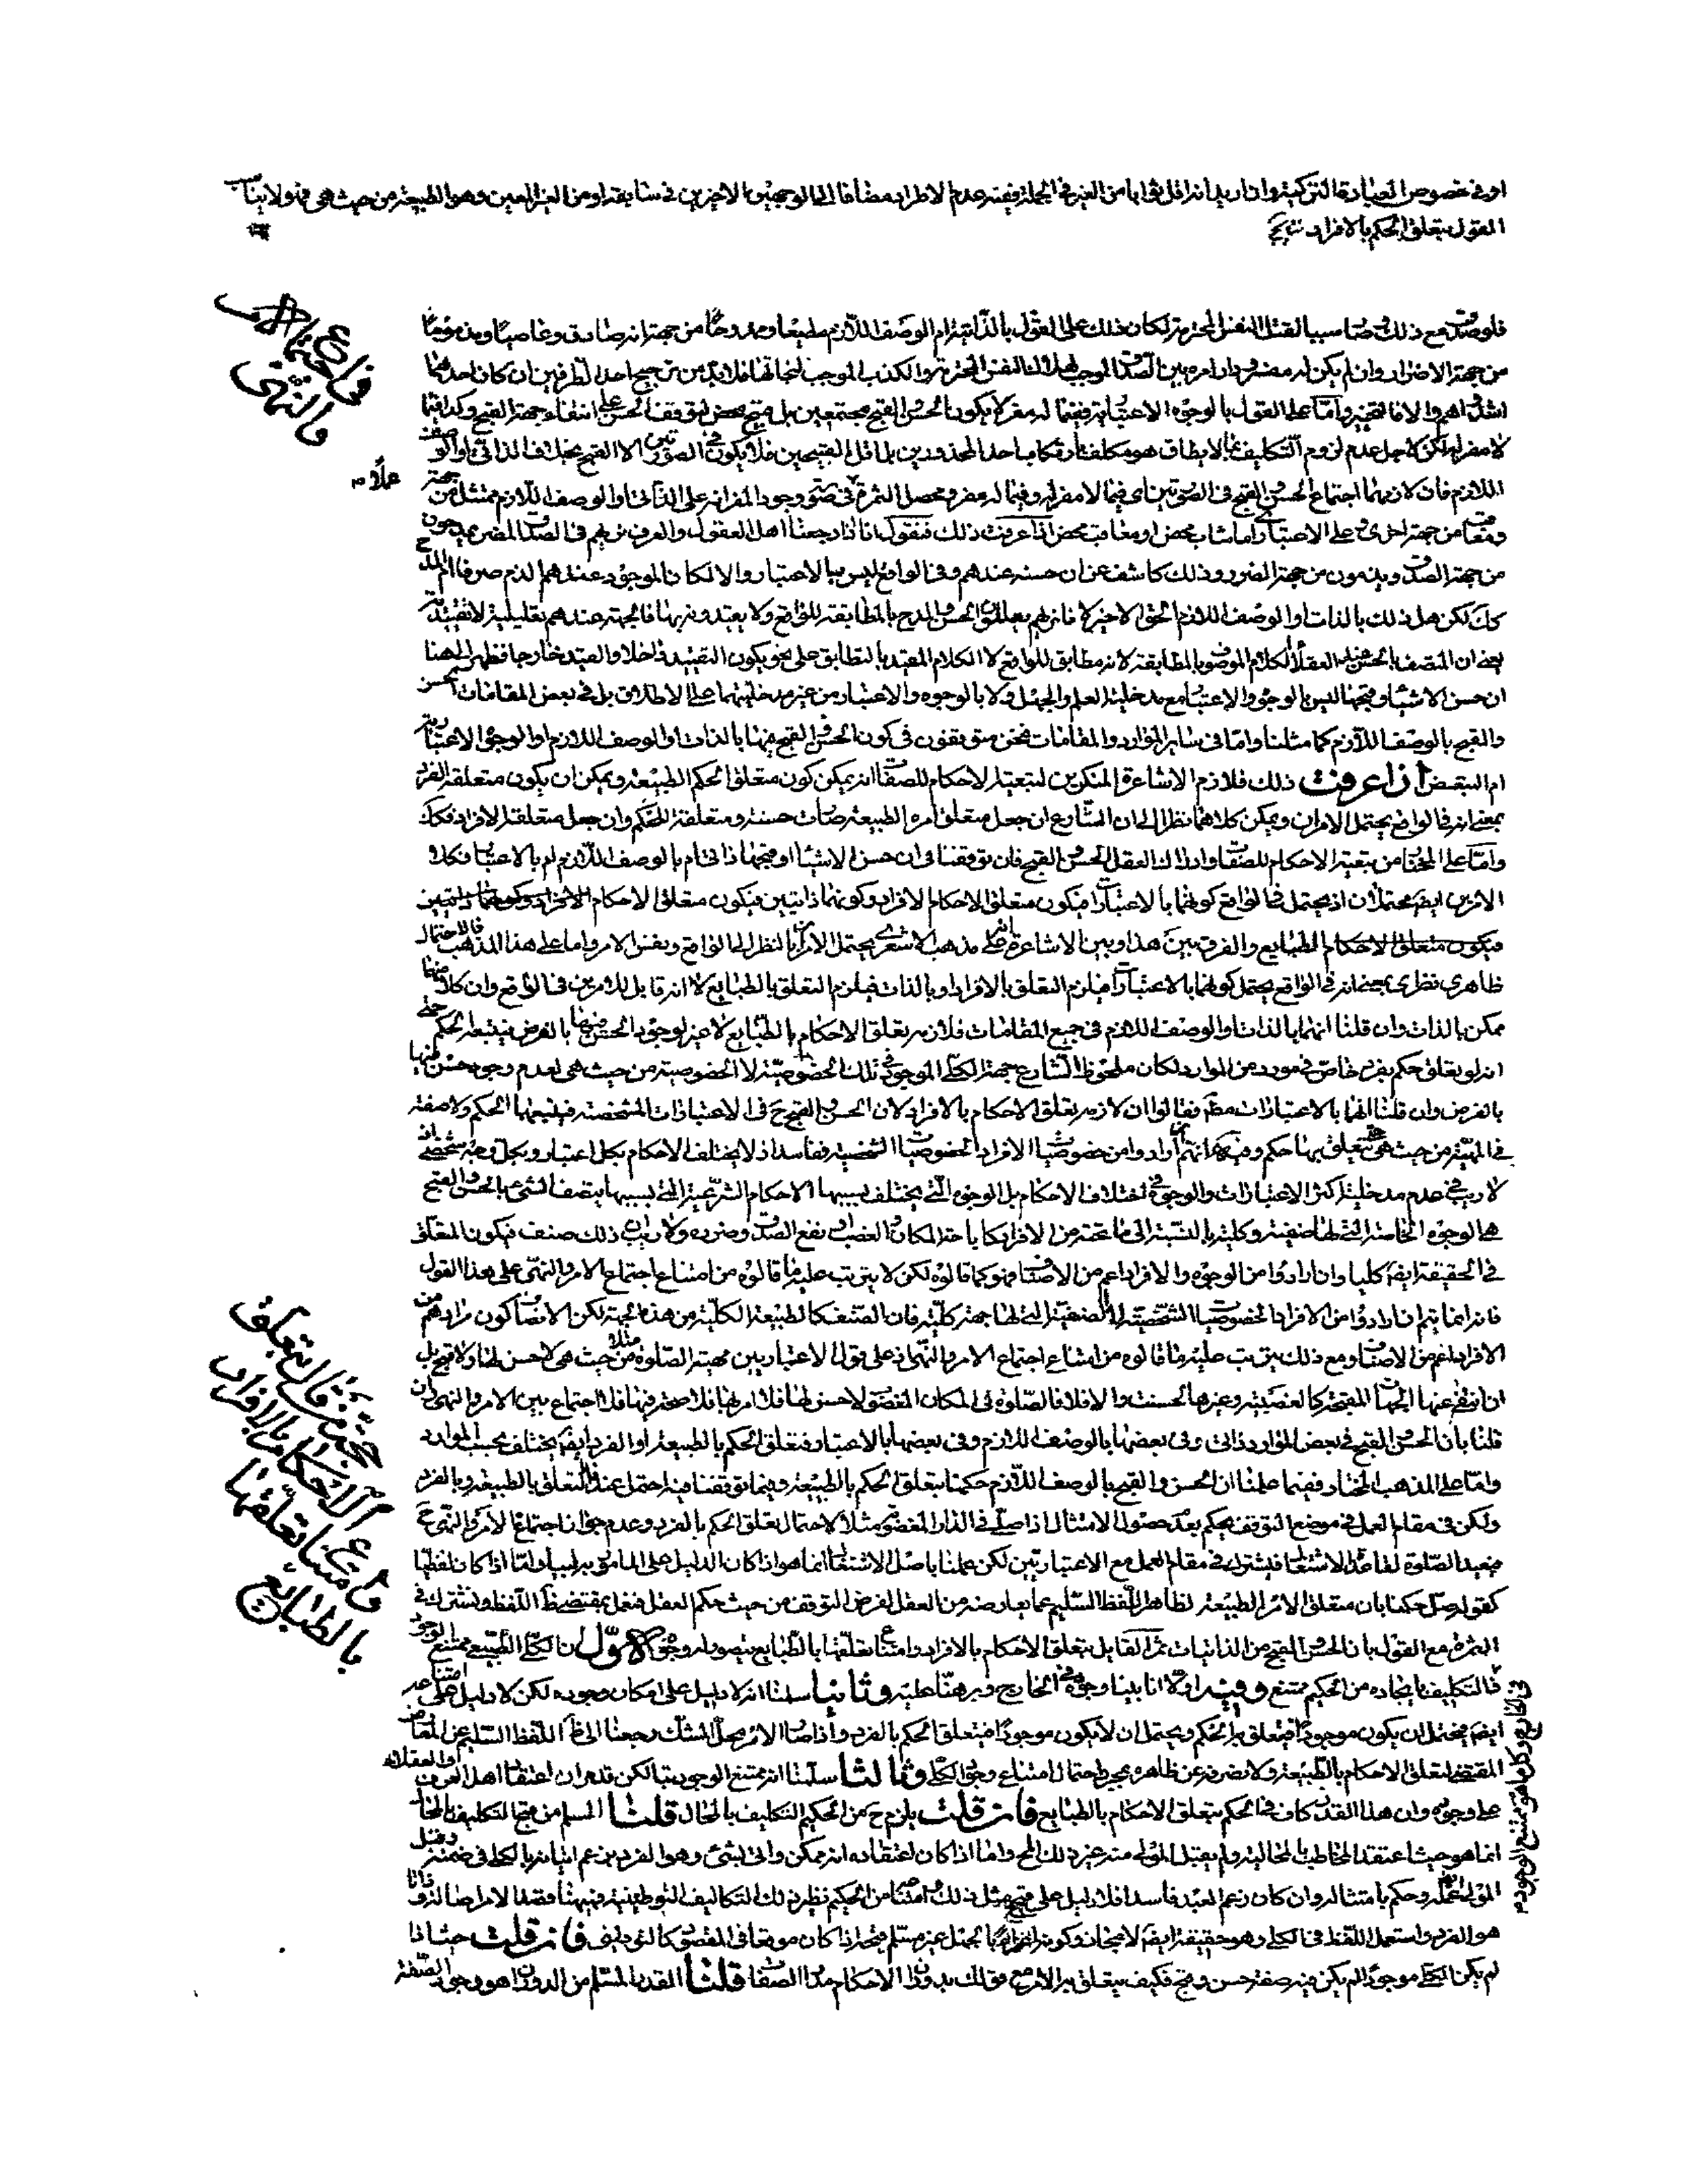 او فى خصوص العبادة التركية وان اريد انه اقل ثوابا من الغير فى الجملة ففيه عدم الاطراد مضافا الى الوجهين الاخيرين فى سابقه او من الغير المعين وهو الطبيعة من حيث هى فهو لا يناسب
القول بتعلق الحكم بالافراد
فلو صدق مع ذلك وصار سببا لقتل النفس المحترمة لكان ذلك على القول بالذاتية ام الوصف اللازم مطيعا وممدوحا من جهة انه صادق وعاصيا ومذموما
من جهة الاضرار وان لم يكن له مفر ودار امره بين الصدق الموجب لهلاك النفس المحترمة والكذب الموجب لنجاتها فلا بد من ترجيح احد الطرفين ان كان احدهما
اشد واهم والا فالتخيير واما على القول بالوجوه الاعتبارية ففيما له مفر لا يكون الحسن والقبح مجتمعين بل قبيح محض لتوقف الحسن على انتفاء جهة القبح وكذا فيما
لا مفر له لكن لاجل عدم لزوم التكليف بما لا يطاق هو مكلف بارتكاب احد المحذورين بل اقل القبيحين فلا يكون فى الصورتين الا القبح بخلاف الذاتى او الوصف
اللازم فان لازمهما اجتماع الحسن والقبح فى الصورتين اى فيما لا مفر له وفيما له مفر وتحصل الثمرة فى صورة وجود المفر انه على الذاتى او الوصف اللازم ممتثل من جهة
ومعاقب من جهة اخرى وعلى الاعتبار اما مثاب محض او معاقب محض اذا عرفت ذلك فنقول انا اذا رجعنا اهل العقول والعرف نريهم فى الصدق المضر يمدحون
من جهة الصدق ويذمون من جهة الضرر وذلك كاشف عن ان حسنه عندهم وفى الواقع ليس بالاعتبار والا لكان الموجود عندهم الذم صرفا او المدح
كك لكن هل ذلك بالذات او الوصف اللازم الحق الاخير لانهم يعللون الحسن والمدح بالمطابقة للواقع ولا يقيدونه بها فالجهة عندهم تعليلية لا تقييدية
يعنى ان المتصف بالحسن عند العقلاء الكلام الموصوف بالمطابقة لانه مطابق للواقع لا الكلام المقيد بالتطابق على نحو يكون التقييد داخلا والقيد خارجا فظهر الى هنا
ان حسن الاشياء وقبحها ليس بالوجوه والاعتبار مع مدخلية العلم والجهل ولا بالوجوه والاعتبار من غير مدخليتهما على الاطلاق بل فى بعض المقامات الحسن
والقبح بالوصف اللازم كما مثلنا واما فى سائر الموارد والمقامات فنحن متوقفون فى كون الحسن والقبح فيها بالذات او الوصف اللازم او الوجوه الاعتبارية
ام التبعض اذا عرفت ذلك فلازم الاشاعرة المنكرين لتبعية الاحكام للصفات انه يمكن كون متعلق الحكم الطبيعة ويمكن ان يكون متعلقه الفرد
بمعنى انه فى الواقع يحتمل الامران ويمكن كلاهما نظرا الى ان الشارع ان جعل متعلق امره الطبيعة صارت حسنة ومتعلقة للحكم وان جعل متعلقه الافراد فكك
واما على المختار من تبعية الاحكام للصفات وادراك العقل الحسن والقبح فان توقفنا فى ان حسن الاشياء وقبحها ذاتى ام بالوصف اللازم ام بالاعتبار فكلا
الامرين ايضا محتملان اذ يحتمل فى الواقع كونهما بالاعتبار فيكون متعلق الاحكام الافراد وكونهما ذاتيين فيكون متعلق الاحكام
فيكون متعلق الاحكام الطبايع والفرق بين هذا وبين الاشاعرة انه على مذهب الاشعرى يحتمل الامران بالنظر الى الواقع ونفس الامر واما على هذا المذهب فالاحتمال
ظاهرى نظرى بمعنى انه فى الواقع يحتمل كونهما بالاعتبار فيلزم التعلق بالافراد او بالذات فيلزم التعلق بالطبايع لا انه قابل للامرين فى الواقع وان كلا منهما
ممكن بالذات وان قلنا انهما بالذات او الوصف اللازم فى جميع المقامات فلازمه تعلق الاحكام بالطبايع لا غير لوجود الحسن فيها بالفرض فيتبعه الحكم حتى
انه لو تعلق حكم بفرد خاص فى مورد من الموارد لكان ملحوظ الشارع جهة الكلى الموجود فى تلك الخصوصية لا الخصوصية من حيث هى لعدم وجود حسن فيها
بالفرض وان قلنا انها بالاعتبارات مطلقا فقالوا ان لازمه تعلق الاحكام بالافراد لان الحسن والقبح ح فى الاعتبارات المشخصة فيتبعها الحكم ولا صفة
فى المهية من حيث هى حتى يتعلق بها حكم وفيه انهم ان ارادوا من خصوصيات الافراد الخصوصيات الشخصية ففاسد اذ لا يختلف الاحكام بكل اعتبار وبكل وجه شخصى اذ
لا ريب فى عدم مدخلية اكثر الاعتبارات والوجوه فى اختلاف الاحكام بل الوجوه التى يختلف بسببها الاحكام الشرعية التى بسببها يتصف الشئ بالحسن والقبح
هى الوجوه الخاصة التى لها صنفية وكلية بالنسبة الى ما تحته من الافراد كاباحة المكان او الغصب او نفع الصدق وضرره ولا ريب ان ذلك صنف فيكون المتعلق
فى الحقيقة ايضا كليا وان ارادوا من الوجوه والافراد اعم من الاصناف فهو كما قالوه لكن لا يترتب عليه ما قالوه من امتناع اجتماع الامر والنهى على هذا القول
فانه انما يتم ان ارادوا من الافراد الخصوصيات الشخصية لا الصنفية التى لها جهة كلية فان الصنف كالطبيعة الكلية من هذه الجهة لكن الانصاف كون مرادهم من
الافراد اعم من الاصناف ومع ذلك يترتب عليه ما قالوه من امتناع اجتماع الامر والنهى اذ على قول الاعتباريين مهية الصلوة مثلا من حيث هى لا حسن لها ولا قبح بل
ان انتفى عنها الجهات المقبحة كالغصبية وغيرها لحسنت والا فلا فالصلوة فى المكان المغصوب لا حسن لها فلا امر لها فلا صحة فيها فلا اجتماع بين الامر والنهى وان
قلنا بان الحسن والقبح فى بعض الموارد ذاتى وفى بعضها بالوصف اللازم وفى بعضها بالاعتبار فتعلق الحكم بالطبيعة او الفرد ايضا يختلف بحسب الموارد
واما على المذهب المختار ففيما علمنا ان الحسن والقبح بالوصف اللازم حكمنا بتعلق الحكم بالطبيعة وفيما توقفنا فيه احتمل عندنا التعلق بالطبيعة وبالفرد
ولكن فى مقام العمل فى موضع التوقف يحكم بعدم حصول الامتثال اذا صلى فى الدار المغصوبة مثلا لاحتمال تعلق الحكم بالفرد وعدم جواز اجتماع الامر والنهى ح
فيعيد الصلوة لقاعدة الاشتغال فيشترك فى مقام العمل مع الاعتباريين لكن عملنا باصل الاشتغال انما هو اذا كان الدليل على المامور به لبيا واما اذا كان لفظيا
كقوله صل حكمنا بان متعلق الامر الطبيعة لظاهر اللفظ السليم عما يعارضه من العقل لفرض التوقف من حيث حكم العقل فنعمل بمقتضى ظ اللفظ ونشترك فى
الثمرة مع القول بان الحسن والقبح من الذاتيات ثم القايل بتعلق الاحكام بالافراد وامتناع تعلقها بالطبايع يتصور له وجوه الاول ان الكلى الطبيعى ممتنع الوجود
فالتكليف بايجاده من الحكيم ممتنع وفيه اولا انا بينا وجوده فى الخارج وبرهنا عليه وثانيا سلمنا انه لا دليل على امكان وجوده لكن لا دليل على امتناعه
ايضا فيحتمل ان يكون موجودا فيتعلق به الحكم ويحتمل ان لا يكون موجودا فيتعلق الحكم بالفرد واذا صار الامر محل الشك رجعنا الى ظ اللفظ السليم عن المعارض
المقتضى لتعلق الاحكام بالطبيعة ولا نصرفه عن ظاهره بمجرد احتمال امتناع وجود الكلى وثالثا سلمنا انه ممتنع الوجود لكن قدمر ان اعتقاد اهل العرف والعقلاء
على وجوده وان هذا القدر كاف فى الحكم بتعلق الاحكام بالطبايع فان قلت يلزم ح من الحكيم التكليف بالمحال قلنا المسلم من قبح التكليف بالمحال
انما هو حيث اعتقد المخاطب بالمحالية ولم يقبل المولى منه غير ذلك المحال واما اذا كان اعتقاده انه ممكن واتى بشئ وهو الفرد بزعم اتيانه بالكلى فى ضمنه وقبل
المولى عمله وحكم بامتثاله وان كان زعم العبد فاسدا فلا دليل على قبح مثل ذلك وامتناعه من الحكيم نظير ذلك التكاليف التوطينية
هو الفرد واستعمل اللفظ فى الكلى وهو حقيقة ايضا
لم يكن الكلى موجودا لم يكن فيه صفة حسن وقبح فكيف يتعلق به الامر مع قولك بدوران الاحكام مدار الصفات قلنا القدر المسلم من الدوران هو وجود الصفة
فى اجتماع الامر
والنهى
حجة من قال بتعلق
الاحكام بالافراد
وامتناع تعلقها
بالطبايع